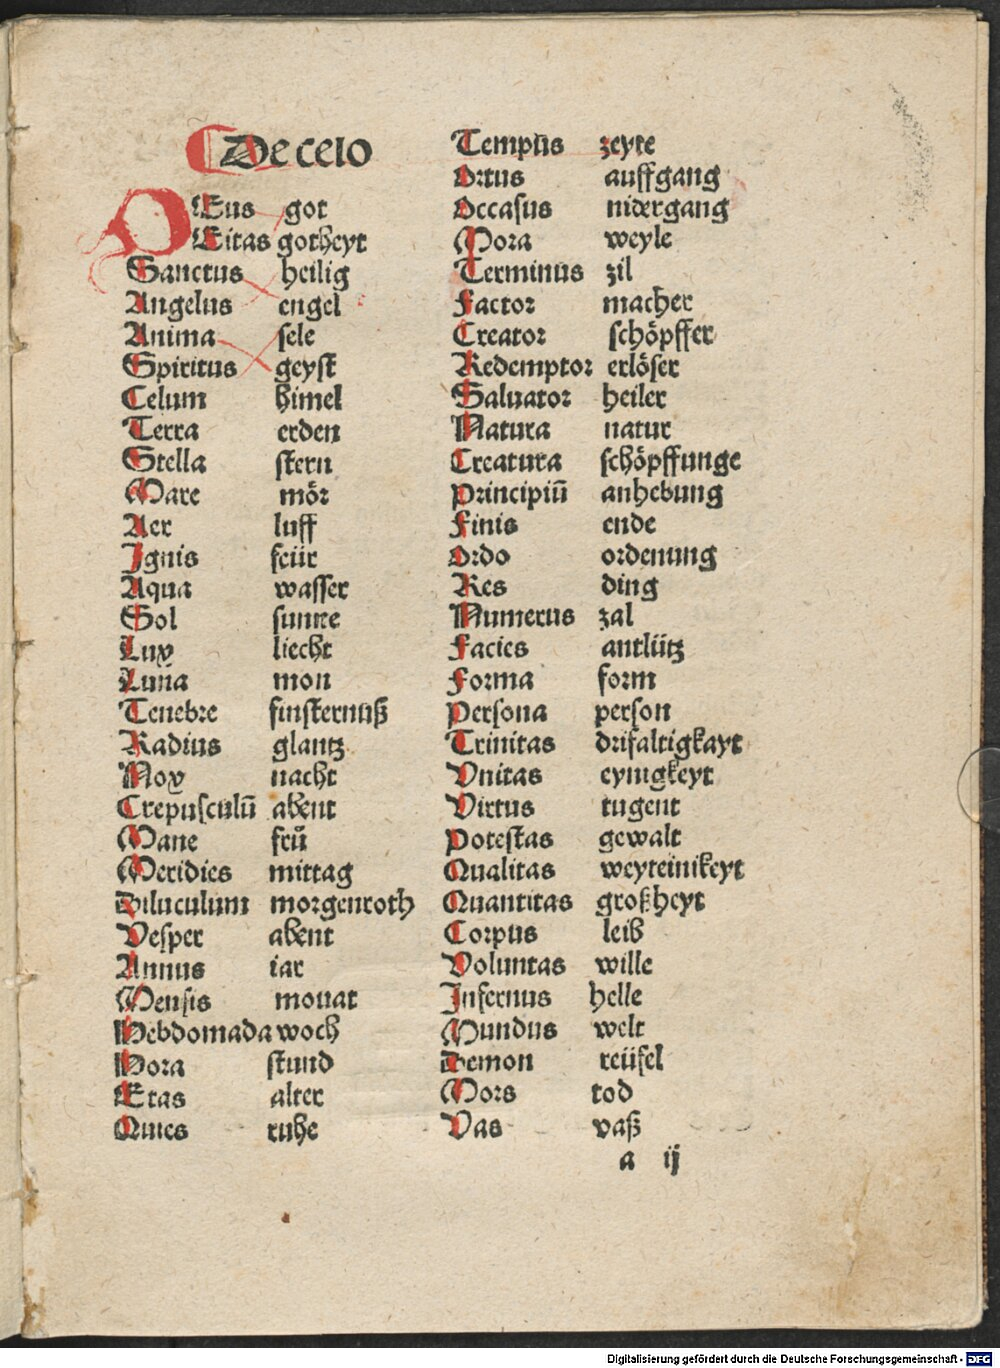 De celo
DEus got
Deitas gotheyt
Sanctus heilig
Angelus engel
Anima sele
Spiritus geyst
Celum himel
Terra erden
Stella stern
Mare mör
Aer luff
Ignis feür
Aqua wasser
Sol sunne
Lux liecht
Luna mon
Tenebre finsternuß
Radius glantz
Nox nacht
Crepusculū abent
Mane frü
Meridies mittag
Diluculum morgenroth
Vesper abent
Annus iar
Mensis monat
Hebdomada woch
Hora stund
Etas alter
Quies ruhe
Tempus zeyte
Ortus auffgang
Occasus nidergang
Mora weyle
Terminus zil
Factor macher
Creator schöpffer
Redemptor erlöser
Saluator heiler
Natura natur
Creatura schöpffunge
Principiū anhebung
Finis ende
Ordo ordenung
Res ding
Numerus zal
Facies antlütz
Forma form
Persona person
Trinitas drifaltigkayt
Vnitas eynigkeyt
Virtus tugent
Potestas gewalt
Qualitas weyteinikeyt
Quantitas großheyt
Corpus leib
Voluntas wille
Infernus helle
Mundus welt
Demon teüfel
Mors tod
Vas vaß
a ij
Digitalisierung gefördert durch die Deutsche Forschungsgemeinschaft - DFG